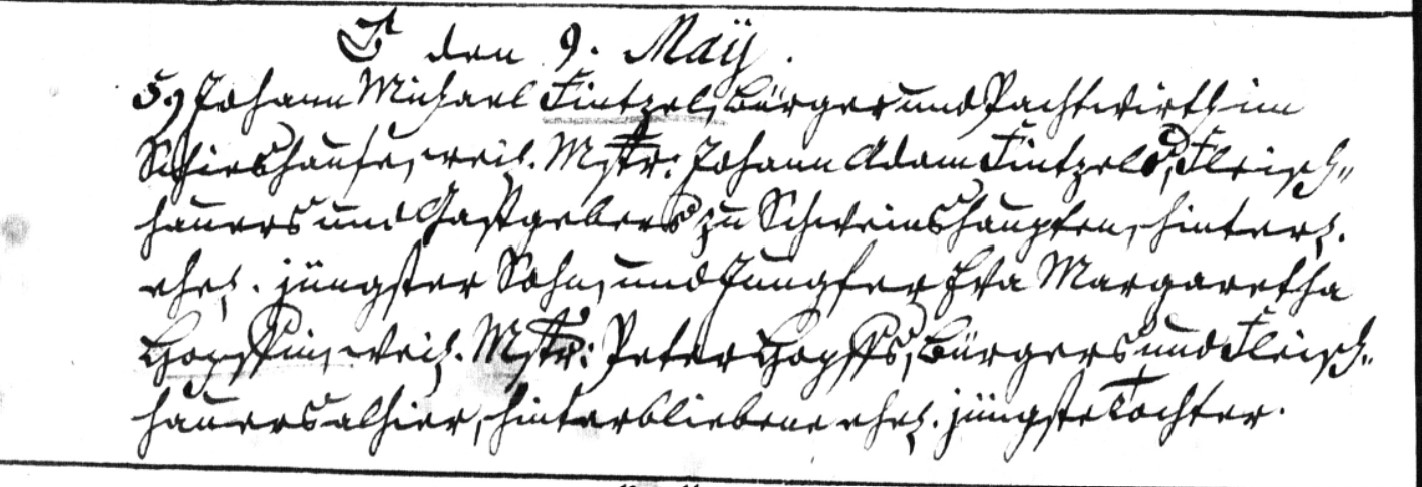 den 9. Maÿ.
5, Johann Michael Fintzel, Bürger und Pachtwirth im
Schieshause, weil. Mstr: Johann Adam Fintzels, Fleisch„
hauers und Gastgebers zu Schweinshaupten, hinterl.
ehel. jüngster Sohn, und Jungfer Eva Margaretha
Hopffin, weil. Mstr: Peter Hopffs, Bürgers und Fleisch„
hauers alhier, hinterbliebene ehel. jüngste Tochter.